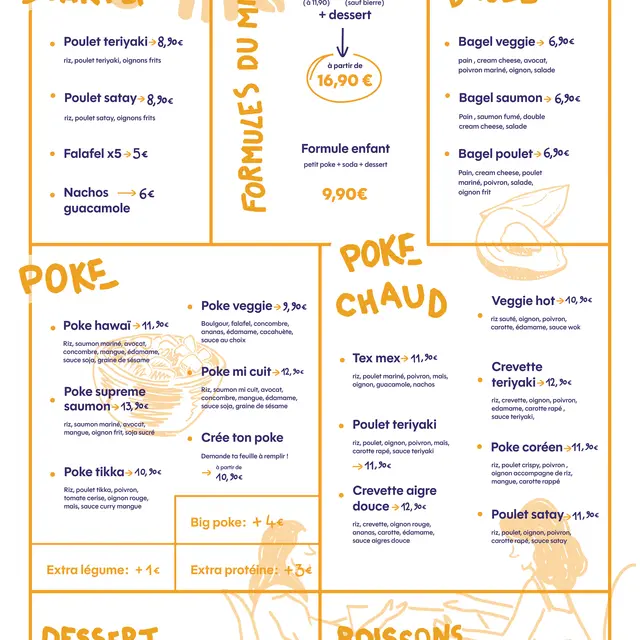 Poulet teriyaki → 8,90€
riz, poulet teriyaki, oignons frits
Poulet satay → 8,90€
riz, poulet satay, oignons frits
Falafel x5 → 5€
Nachos → 6€
guacamole
FORMULES DU
(à 11,90) (sauf bierre)
+ dessert
à partir de
16,90 €
Formule enfant
petit poke + soda + dessert
9,90€
Bagel veggie → 6,90€
pain , cream cheese, avocat,
poivron mariné, oignon, salade
Bagel saumon → 6,90€
Pain , saumon fumé, double
cream cheese, salade
Bagel poulet → 6,90€
Pain, cream cheese, poulet
mariné, poivron, salade,
oignon frit
POKE
Poke hawaï → 11,90€
Riz, saumon mariné, avocat,
concombre, mangue, édamame,
sauce soja, graine de sésame
Poke supreme
saumon → 13,90€
riz, saumon mariné, avocat,
mangue, oignon frit, soja sucré
Poke tikka → 10,90€
Riz, poulet tikka, poivron,
tomate cerise, oignon rouge,
maïs, sauce curry mangue
Poke veggie → 9,90€
Boulgour, falafel, concombre,
ananas, édamame, cacahuète,
sauce au choix
Poke mi cuit → 12,90€
Riz, saumon mi cuit, avocat,
concombre, mangue, édamame,
sauce soja, graine de sésame
Crée ton poke
Demande ta feuille à remplir !
→ à partir de
10,90€
Big poke: + 4€
Extra légume: + 1€
Extra protéine: + 3€
POKE
CHAUD
Tex mex → 11,90€
riz, poulet mariné, poivron, maïs,
oignon, guacamole, nachos
Poulet teriyaki
riz, poulet, oignon, poivron, maïs,
carotte rapé, sauce teriyaki
→ 11,90€
Crevette aigre
douce → 12,90€
riz, crevette, oignon rouge,
ananas, carotte, édamame,
sauce aigres douce
Veggie hot → 10,90€
riz sauté, oignon, poivron,
carotte, édamame, sauce wok
Crevette
teriyaki → 12,90€
riz, crevette, oignon, poivron,
edamame, carotte rapé ,
sauce teriyaki,
Poke coréen → 11,90€
riz, poulet crispy, poivron ,
oignon accompagne de riz,
mangue, carotte rappé
Poulet satay → 11,90€
riz, poulet, oignon, poivron,
carotte rapé, sauce satay
DESSERT
BOISSONS